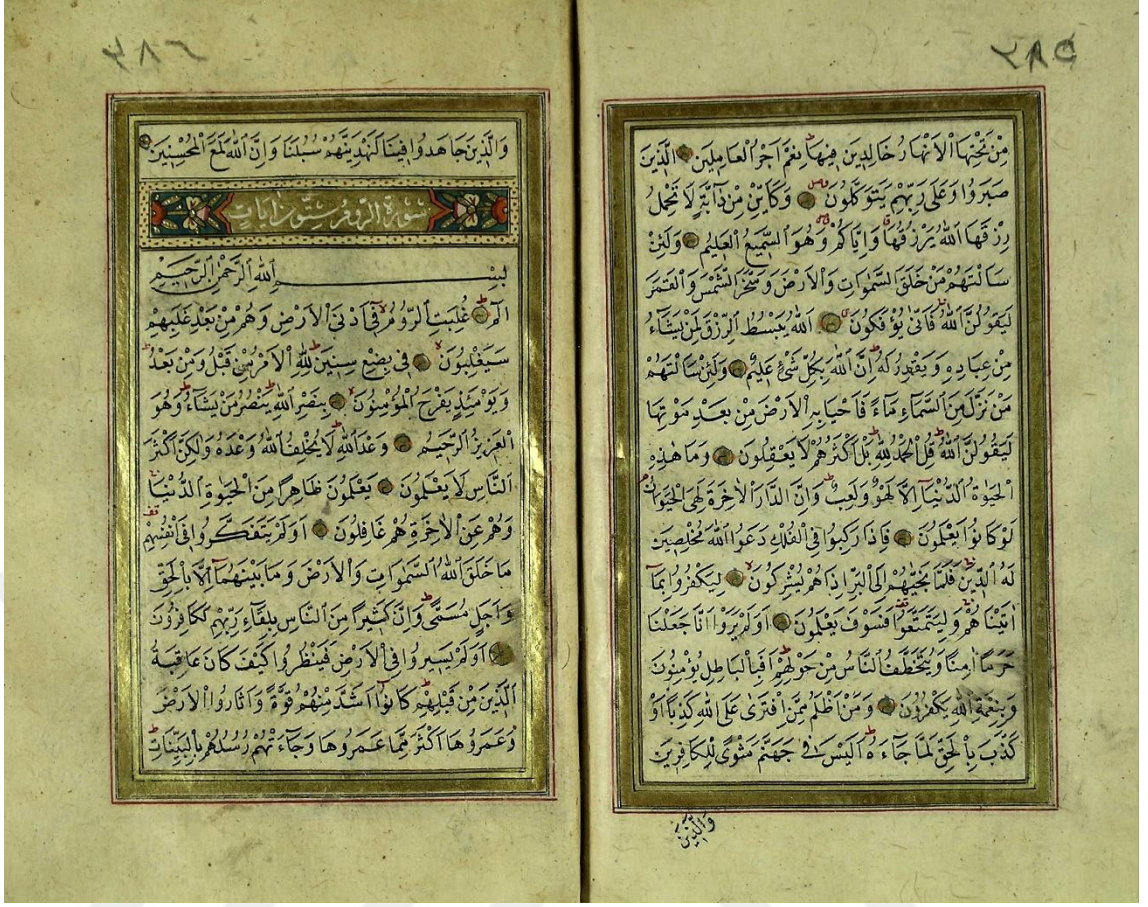 مِنْ تَحْتِهَا الْاَنْهَارُ خَالِدِينَ فِيهَا نِعْمَ اَجْرُ الْعَامِلِينَ الَّذِينَ
صَبَرُوا وَعَلَى رَبِّهِمْ يَتَوَكَّلُونَ وَكَاَيِّنْ مِنْ دَابَّةٍ لَا تَحْمِلُ
رِزْقَهَا اللهُ يَرْزُقُهَا وَاِيَّاكُمْ وَهُوَ السَّمِيعُ الْعَلِيمُ وَلَئِنْ
سَاَلْتَهُمْ مَنْ خَلَقَ السَّمٰوَاتِ وَالْاَرْضَ وَسَخَّرَ الشَّمْسَ وَالْقَمَرَ
لَيَقُولُنَّ اللهُ فَاَنّٰى يُؤْفَكُونَ اَللهُ يَبْسُطُ الرِّزْقَ لِمَنْ يَشَاءُ
مِنْ عِبَادِهِ وَيَقْدِرُ لَهُ اِنَّ اللهَ بِكُلِّ شَيْءٍ عَلِيمٌ وَلَئِنْ سَاَلْتَهُمْ
مَنْ نَزَّلَ مِنَ السَّمَاءِ مَاءً فَاَحْيَا بِهِ الْاَرْضَ مِنْ بَعْدِ مَوْتِهَا
لَيَقُولُنَّ اللهُ قُلِ الْحَمْدُ لِلّٰهِ بَلْ اَكْثَرُهُمْ لَا يَعْقِلُونَ وَمَا هٰذِهِ
الْحَيٰوةُ الدُّنْيَا اِلَّا لَهْوٌ وَلَعِبٌ وَاِنَّ الدَّارَ الْاٰخِرَةَ لَهِيَ الْحَيَوَانُ
لَوْ كَانُوا يَعْلَمُونَ فَاِذَا رَكِبُوا فِي الْفُلْكِ دَعَوُا اللهَ مُخْلِصِينَ
لَهُ الدِّينَ فَلَمَّا نَجّٰيهُمْ اِلَى الْبَرِّ اِذَا هُمْ يُشْرِكُونَ لِيَكْفُرُوا بِمَا
اٰتَيْنَاهُمْ وَلِيَتَمَتَّعُوا فَسَوْفَ يَعْلَمُونَ اَوَلَمْ يَرَوْا اَنَّا جَعَلْنَا
حَرَمًا اٰمِنًا وَيُتَخَطَّفُ النَّاسُ مِنْ حَوْلِهِمْ اَفَبِالْبَاطِلِ يُؤْمِنُونَ
وَبِنِعْمَةِ اللهِ يَكْفُرُونَ وَمَنْ اَظْلَمُ مِمَّنِ افْتَرٰى عَلَى اللهِ كَذِبًا اَوْ
كَذَّبَ بِالْحَقِّ لَمَّا جَاءَهُ اَلَيْسَ فِي جَهَنَّمَ مَثْوًى لِلْكَافِرِينَ
وَالَّذِينَ
وَالَّذِينَ جَاهَدُوا فِينَا لَنَهْدِيَنَّهُمْ سُبُلَنَا وَاِنَّ اللهَ لَمَعَ الْمُحْسِنِينَ
سورة الروم ستون ايات
بِسْمِ اللهِ الرَّحْمٰنِ الرَّحِيمِ
الٓمٓ غُلِبَتِ الرُّومُ فِي اَدْنَى الْاَرْضِ وَهُمْ مِنْ بَعْدِ غَلَبِهِمْ
سَيَغْلِبُونَ فِي بِضْعِ سِنِينَ لِلّٰهِ الْاَمْرُ مِنْ قَبْلُ وَمِنْ بَعْدُ
وَيَوْمَئِذٍ يَفْرَحُ الْمُؤْمِنُونَ بِنَصْرِ اللهِ يَنْصُرُ مَنْ يَشَاءُ وَهُوَ
الْعَزِيزُ الرَّحِيمُ وَعْدَ اللهِ لَا يُخْلِفُ اللهُ وَعْدَهُ وَلٰكِنَّ اَكْثَرَ
النَّاسِ لَا يَعْلَمُونَ يَعْلَمُونَ ظَاهِرًا مِنَ الْحَيٰوةِ الدُّنْيَا
وَهُمْ عَنِ الْاٰخِرَةِ هُمْ غَافِلُونَ اَوَلَمْ يَتَفَكَّرُوا فِي اَنْفُسِهِمْ
مَا خَلَقَ اللهُ السَّمٰوَاتِ وَالْاَرْضَ وَمَا بَيْنَهُمَا اِلَّا بِالْحَقِّ
وَاَجَلٍ مُسَمًّى وَاِنَّ كَثِيرًا مِنَ النَّاسِ بِلِقَاءِ رَبِّهِمْ لَكَافِرُونَ
اَوَلَمْ يَسِيرُوا فِي الْاَرْضِ فَيَنْظُرُوا كَيْفَ كَانَ عَاقِبَةُ
الَّذِينَ مِنْ قَبْلِهِمْ كَانُوا اَشَدَّ مِنْهُمْ قُوَّةً وَاَثَارُوا الْاَرْضَ
وَعَمَرُوهَا اَكْثَرَ مِمَّا عَمَرُوهَا وَجَاءَتْهُمْ رُسُلُهُمْ بِالْبَيِّنَاتِ